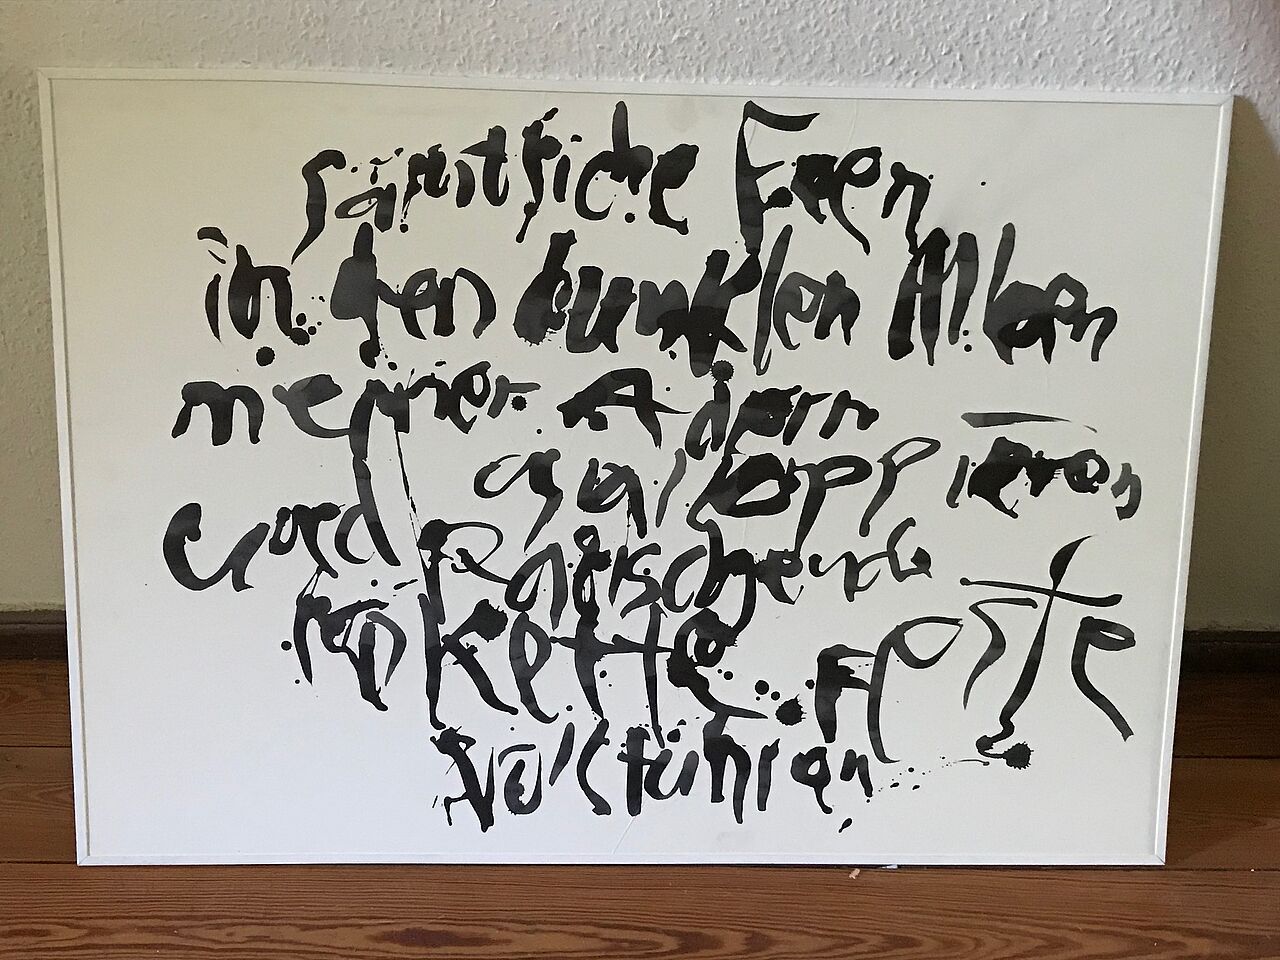 sämtliche Feen
in den dunklen Alleen
meiner Adern
galoppieren
und Rauschende
kokette Feste
vollführen